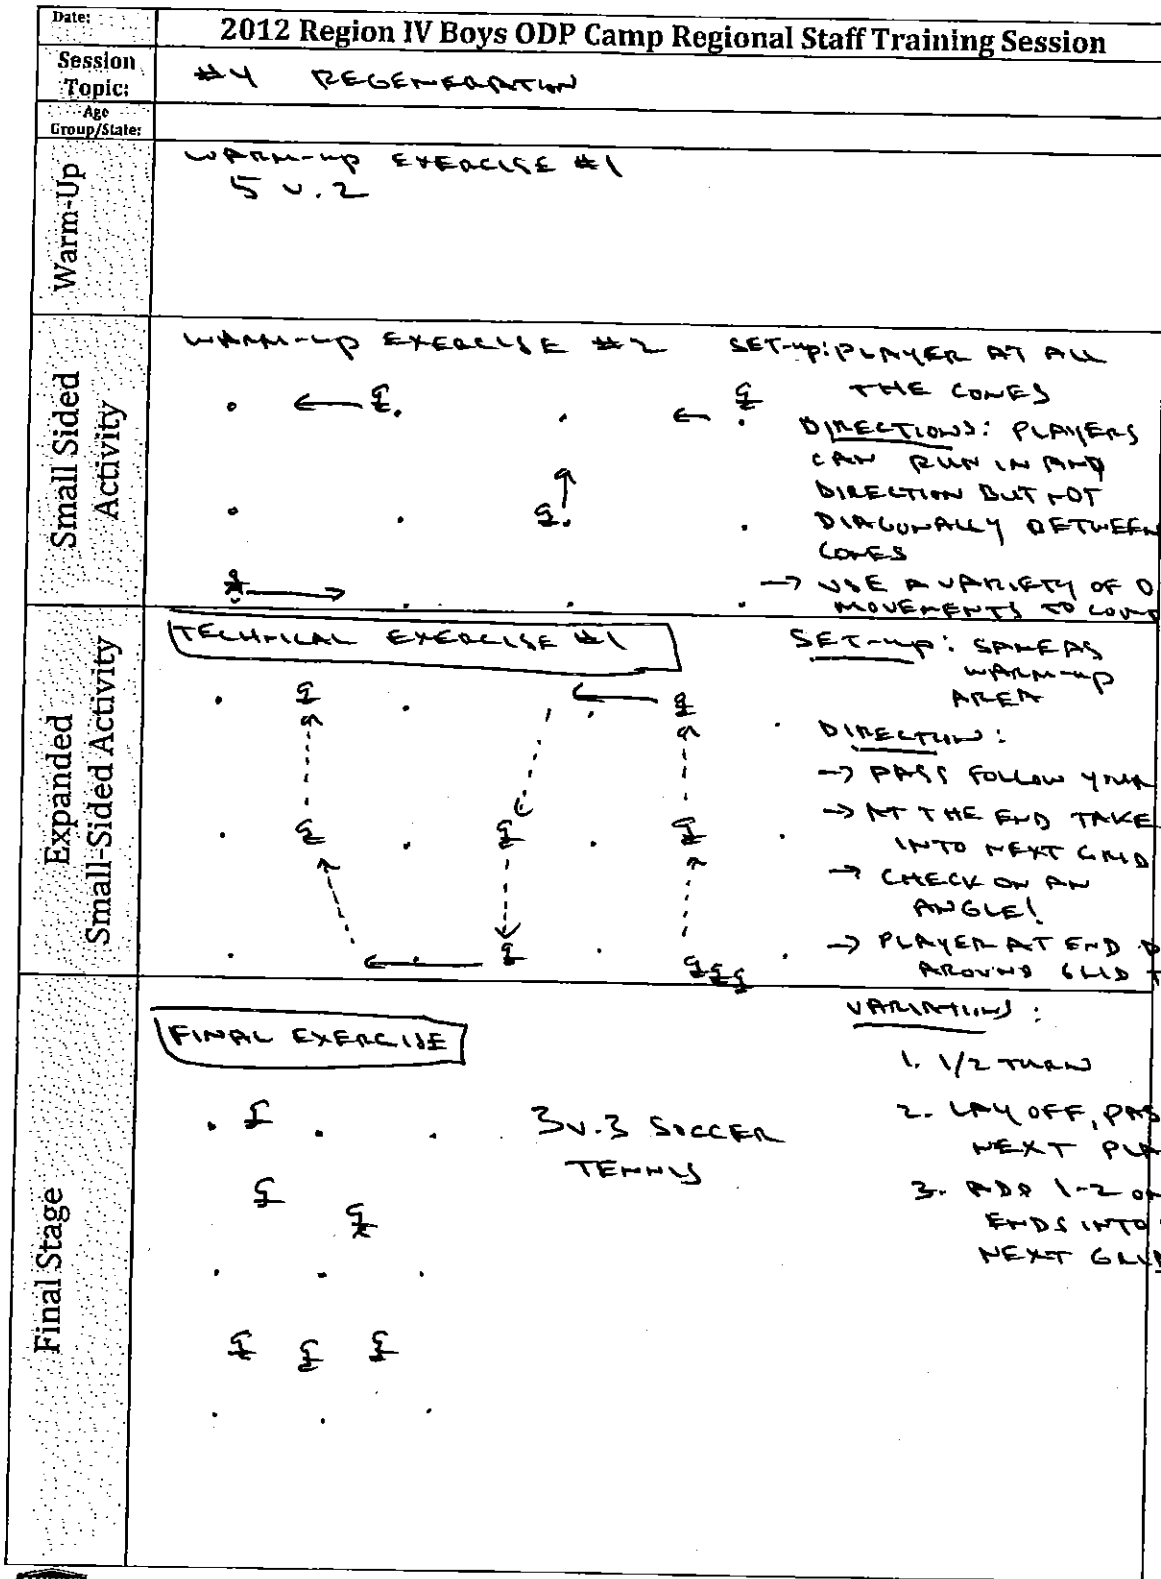 Date:
2012 Region IV Boys ODP Camp Regional Staff Training Session
Session Topic:
#4 REGENERATION
Age Group/State:
Warm-Up
WARM-UP EXERCISE #1
5 v. 2
Small Sided Activity
WARM-UP EXERCISE #2
SET-UP: PLAYER AT ALL
THE CONES
DIRECTIONS: PLAYERS
CAN RUN IN AND
DIRECTION BUT NOT
DIAGONALLY BETWEEN
CONES
→ USE A VARIETY OF
MOVEMENTS TO
Expanded Small-Sided Activity
TECHNICAL EXERCISE #1
SET-UP: SAME AS
WARM-UP
AREA
DIRECTION:
→ PASS FOLLOW YOUR
→ AT THE END TAKE
INTO NEXT GRID
→ CHECK ON AN
ANGLE!
→ PLAYER AT END
AROUND GRID
Final Stage
FINAL EXERCISE
3v.3 SOCCER
TENNIS
VARIATIONS:
1. 1/2 TURN
2. LAY OFF, PAS
NEXT PLA
3. ADD 1-2 ON
ENDS INTO
NEXT GRID